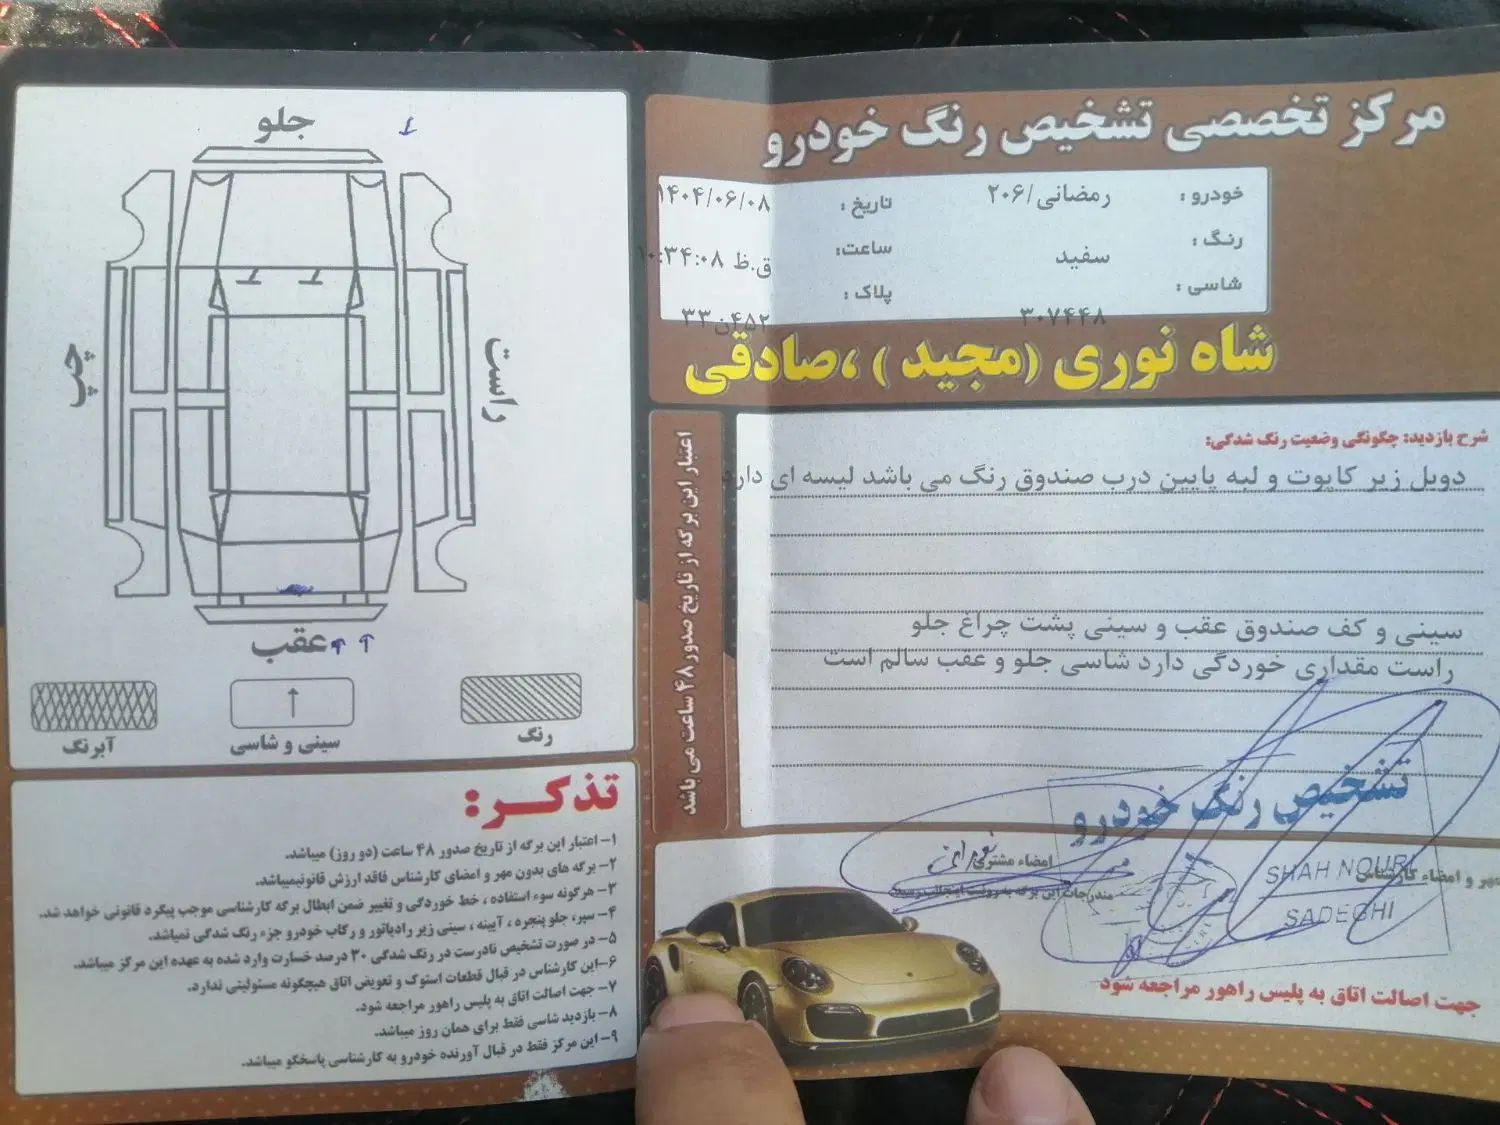 مرکز تخصصی تشخیص رنگ خودرو
خودرو : رمضانی/۲۰۶
تاریخ : ۱۴۰۴/۰۶/۰۸
رنگ : سفید
ساعت: ق.ظ ۱۰:۳۴:۰۸
شاسی : ۳۰۷۴۴۸
پلاک : ۴۵۲ن۳۳
شاه نوری (مجید ) ،صادقی
شرح بازدید: چگونگی وضعیت رنگ شدگی:
دوبل زیر کاپوت و لبه پایین درب صندوق رنگ می باشد لیسه ای دارد
سینی و کف صندوق عقب و سینی پشت چراغ جلو
راست مقداری خوردگی دارد شاسی جلو و عقب سالم است
اعتبار این برگه از تاریخ صدور ۴۸ ساعت می باشد
تشخیص رنگ خودرو
SHAH NOURI
SADEGHI
مهر و امضاء کارشناس
امضاء مشتری
مندرجات این برگه به رویت اینجانب رسید
جهت اصالت اتاق به پلیس راهور مراجعه شود
جلو
چپ
راست
عقب
رنگ
سینی و شاسی
آبرنگ
تذکر:
۱- اعتبار این برگه از تاریخ صدور ۴۸ ساعت (دو روز) میباشد.
۲- برگه های بدون مهر و امضای کارشناس فاقد ارزش قانونیمیباشد.
۳- هرگونه سوء استفاده ، خط خوردگی و تغییر ضمن ابطال برگه کارشناسی موجب پیگرد قانونی خواهد شد.
۴- سپر، جلو پنجره ، آیینه ، سینی زیر رادیاتور و رکاب خودرو جزء رنگ شدگی نمیباشد.
۵- در صورت تشخیص نادرست در رنگ شدگی ۳۰ درصد خسارت وارد شده به عهده این مرکز میباشد.
۶-این کارشناس در قبال قطعات استوک و تعویض اتاق هیچگونه مسئولیتی ندارد.
۷- جهت اصالت اتاق به پلیس راهور مراجعه شود.
۸- بازدید شاسی فقط برای همان روز میباشد.
۹- این مرکز فقط در قبال آورنده خودرو به کارشناسی پاسخگو میباشد.